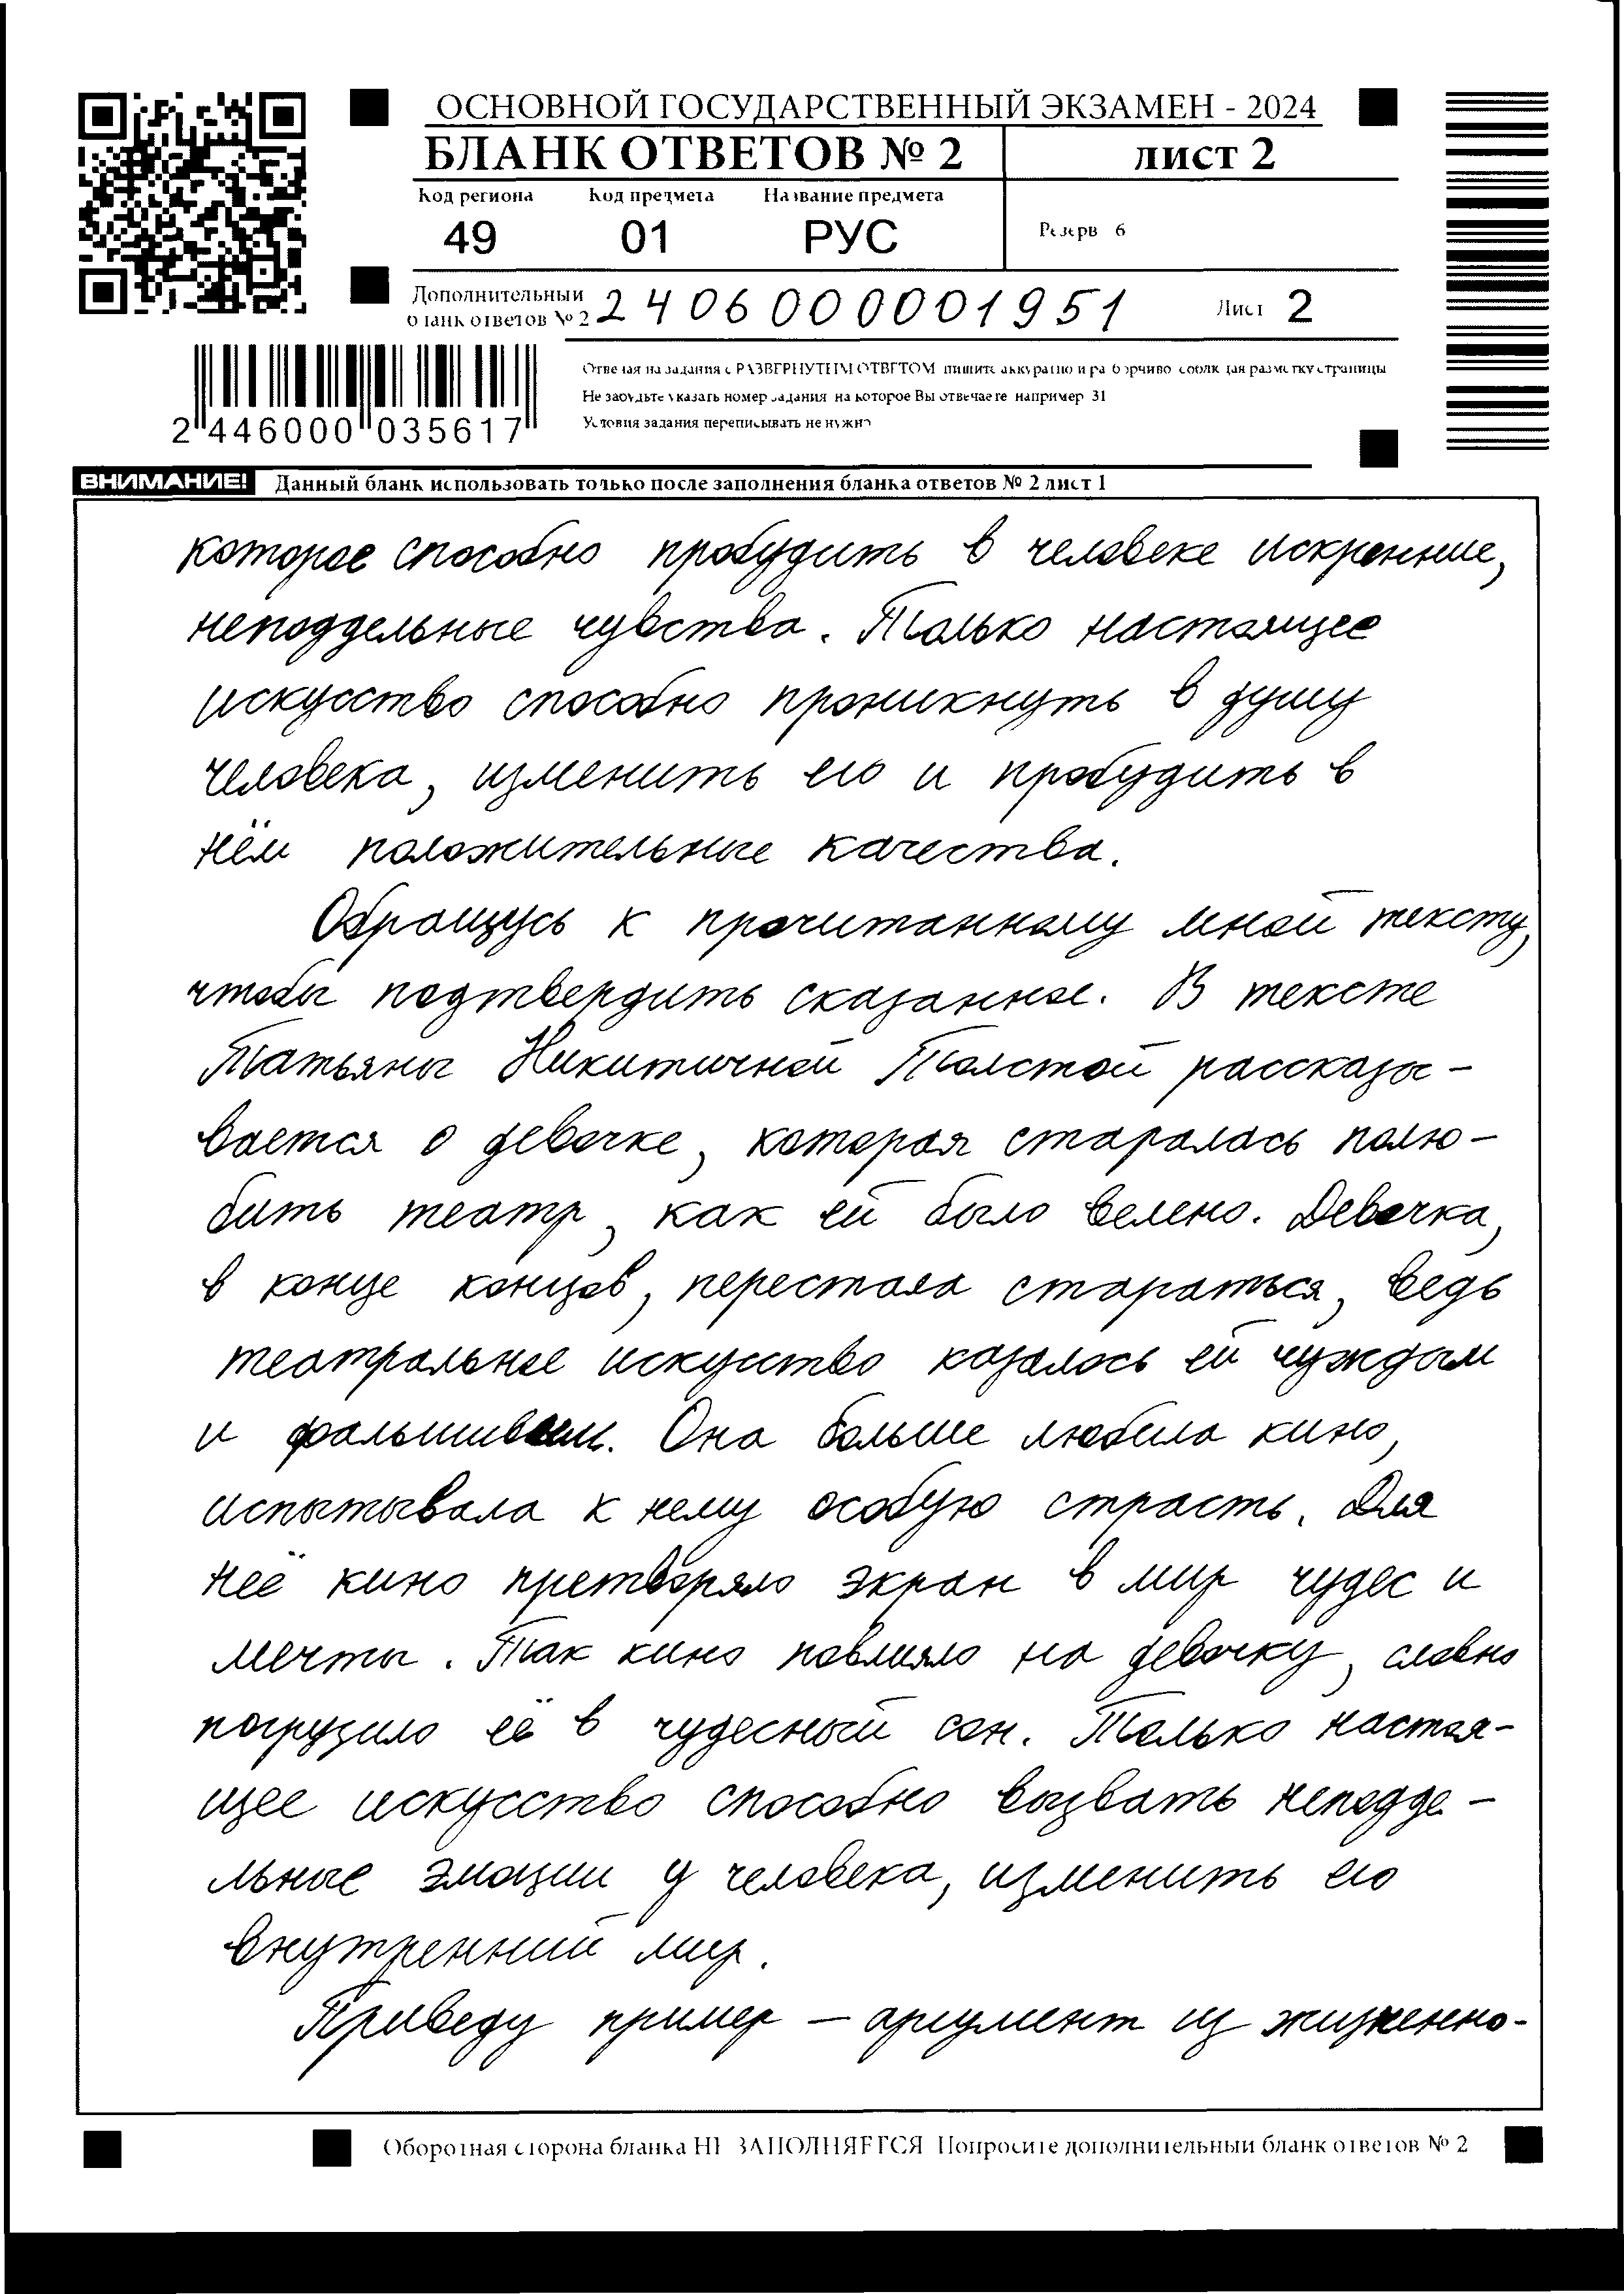 ОСНОВНОЙ ГОСУДАРСТВЕННЫЙ ЭКЗАМЕН - 2024
БЛАНК ОТВЕТОВ № 2
ЛИСТ 2
Код региона Код предмета Название предмета
49 01 РУС
Резерв 6
Дополнительный
бланк ответов № 2 2406000001951
Лист 2
2 446000 035617
Отвечая на задания с РАЗВЕРНУТЫМ ОТВЕТОМ пишите аккуратно и разборчиво соблюдая разметку страницы
Не забудьте указать номер задания на которое Вы отвечаете например 31
Условия задания переписывать не нужно
ВНИМАНИЕ! Данный бланк использовать только после заполнения бланка ответов № 2 лист 1
которое способно пробудить в человеке искренние,
неподдельные чувства. Только настоящее
искусство способно проникнуть в душу
человека, изменить его и пробудить в
нём положительные качества.
Обращусь к прочитанному мной тексту,
чтобы подтвердить сказанное. В тексте
Татьяны Никитичной Толстой рассказы-
вается о девочке, которая старалась полю-
бить театр, как ей было велено. Девочка,
в конце концов, перестала стараться, ведь
театральное искусство казалось ей чуждым
и фальшивым. Она больше любила кино,
испытывала к нему особую страсть. Для
неё кино претворяло экран в мир чудес и
мечты. Так кино повлияло на девочку, словно
погрузило её в чудесный сон. Только настоя-
щее искусство способно вызвать неподде-
льные эмоции у человека, изменить его
внутренний мир.
Приведу пример - аргумент из жизненно-
Оборотная сторона бланка НЕ ЗАПОЛНЯЕТСЯ Попросите дополнительный бланк ответов № 2